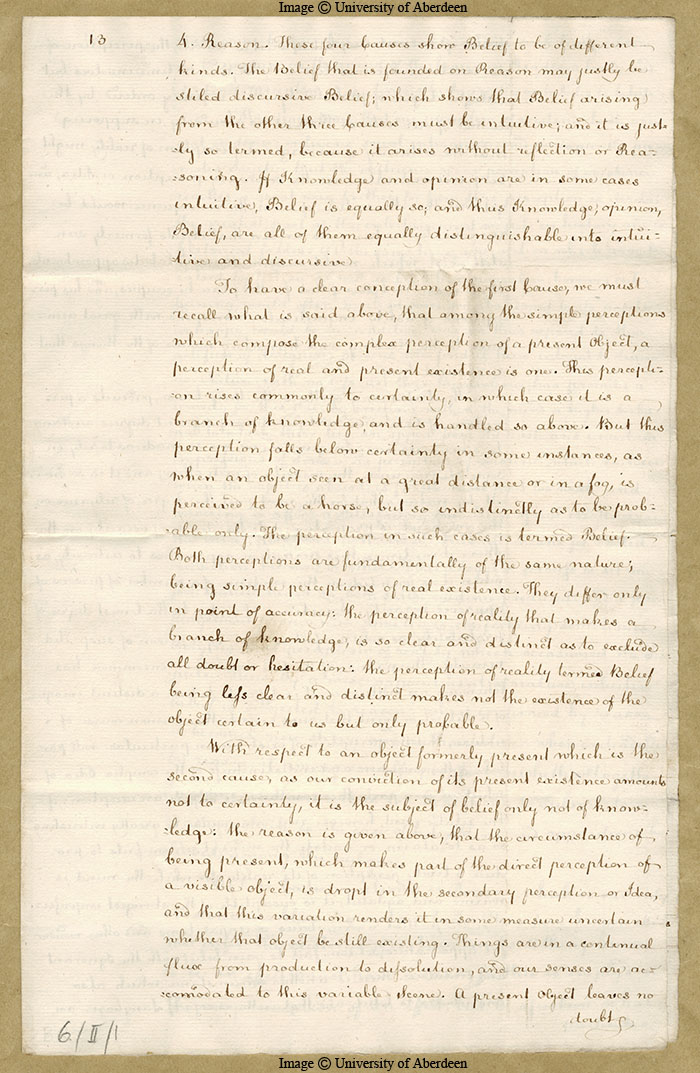 Image © University of Aberdeen
13
4. Reason. These four Causes show Belief to be of different
kinds. The Belief that is founded on Reason may justly be
stiled discursive Belief; which shows that Belief arising
from the other three Causes must be intuitive; and it is just-
-ly so termed, because it arises without reflection or Rea-
-soning. If Knowledge and opinion are in some cases
intuitive, Belief is equally so; and thus Knowledge, opinion,
Belief, are all of them equally distinguishable into intui-
-tive and discursive
To have a clear conception of the first Cause, we must
recall what is said above, that among the simple perceptions
which compose the complex perception of a present Object, a
perception of real and present existence is one. This percepti-
-on rises commonly to certainty, in which case it is a
branch of knowledge, and is handled so above. But this
perception falls below certainty in some instances, as
when an object seen at a great distance or in a fog, is
perceived to be a horse, but so indistinctly as to be prob-
-able only. The perception in such cases is termed Belief.
Both perceptions are fundamentally of the same nature;
being simple perceptions of real existence. They differ only
in point of accuracy: the perception of reality that makes a
branch of knowledge, is so clear and distinct as to exclude
all doubt or hesitation: the perception of reality termed Belief
being less clear and distinct makes not the existence of the
object certain to us but only probable.
With respect to an object formerly present which is the
second cause, as our conviction of its present existence amounts
not to certainty, it is the subject of belief only not of know-
-ledge: the reason is given above, that the circumstance of
being present, which makes part of the direct perception of
a visible object, is dropt in the secondary perception or Idea,
and that this variation renders it in some measure uncertain
whether that object be still existing. Things are in a continual
flux from production to dissolution, and our senses are ac-
-comodated to this variable scene. A present Object leaves no
doubt
6/II/1
Image © University of Aberdeen